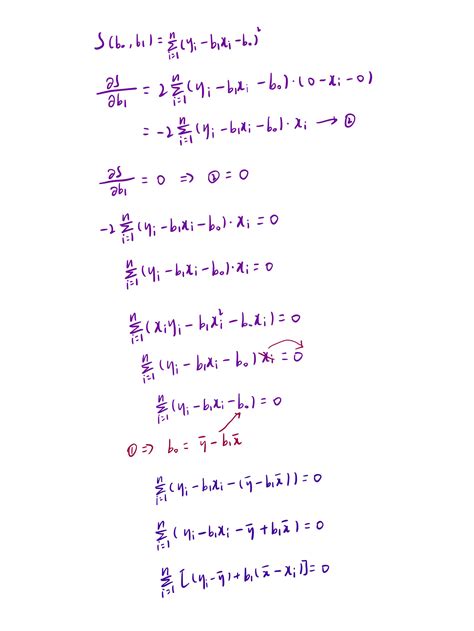 S(b₀,b₁) = Σⁿᵢ₌₁(yᵢ-b₁xᵢ-b₀)²
∂S/∂b₁ = 2Σⁿᵢ₌₁(yᵢ-b₁xᵢ-b₀)·(0-xᵢ-0)
= -2Σⁿᵢ₌₁(yᵢ-b₁xᵢ-b₀)·xᵢ → ②
∂S/∂b₁ = 0 ⇒ ② = 0
-2Σⁿᵢ₌₁(yᵢ-b₁xᵢ-b₀)·xᵢ = 0
Σⁿᵢ₌₁(yᵢ-b₁xᵢ-b₀)·xᵢ = 0
Σⁿᵢ₌₁(xᵢyᵢ-b₁xᵢ²-b₀xᵢ) = 0
Σⁿᵢ₌₁(yᵢ-b₁xᵢ-b₀)xᵢ = 0
Σⁿᵢ₌₁(yᵢ-b₁xᵢ-b₀) = 0
① ⇒ b₀ = ȳ-b₁x̄
Σⁿᵢ₌₁(yᵢ-b₁xᵢ-(ȳ-b₁x̄)) = 0
Σⁿᵢ₌₁(yᵢ-b₁xᵢ-ȳ+b₁x̄) = 0
Σⁿᵢ₌₁[(yᵢ-ȳ)+b₁(x̄-xᵢ)] = 0